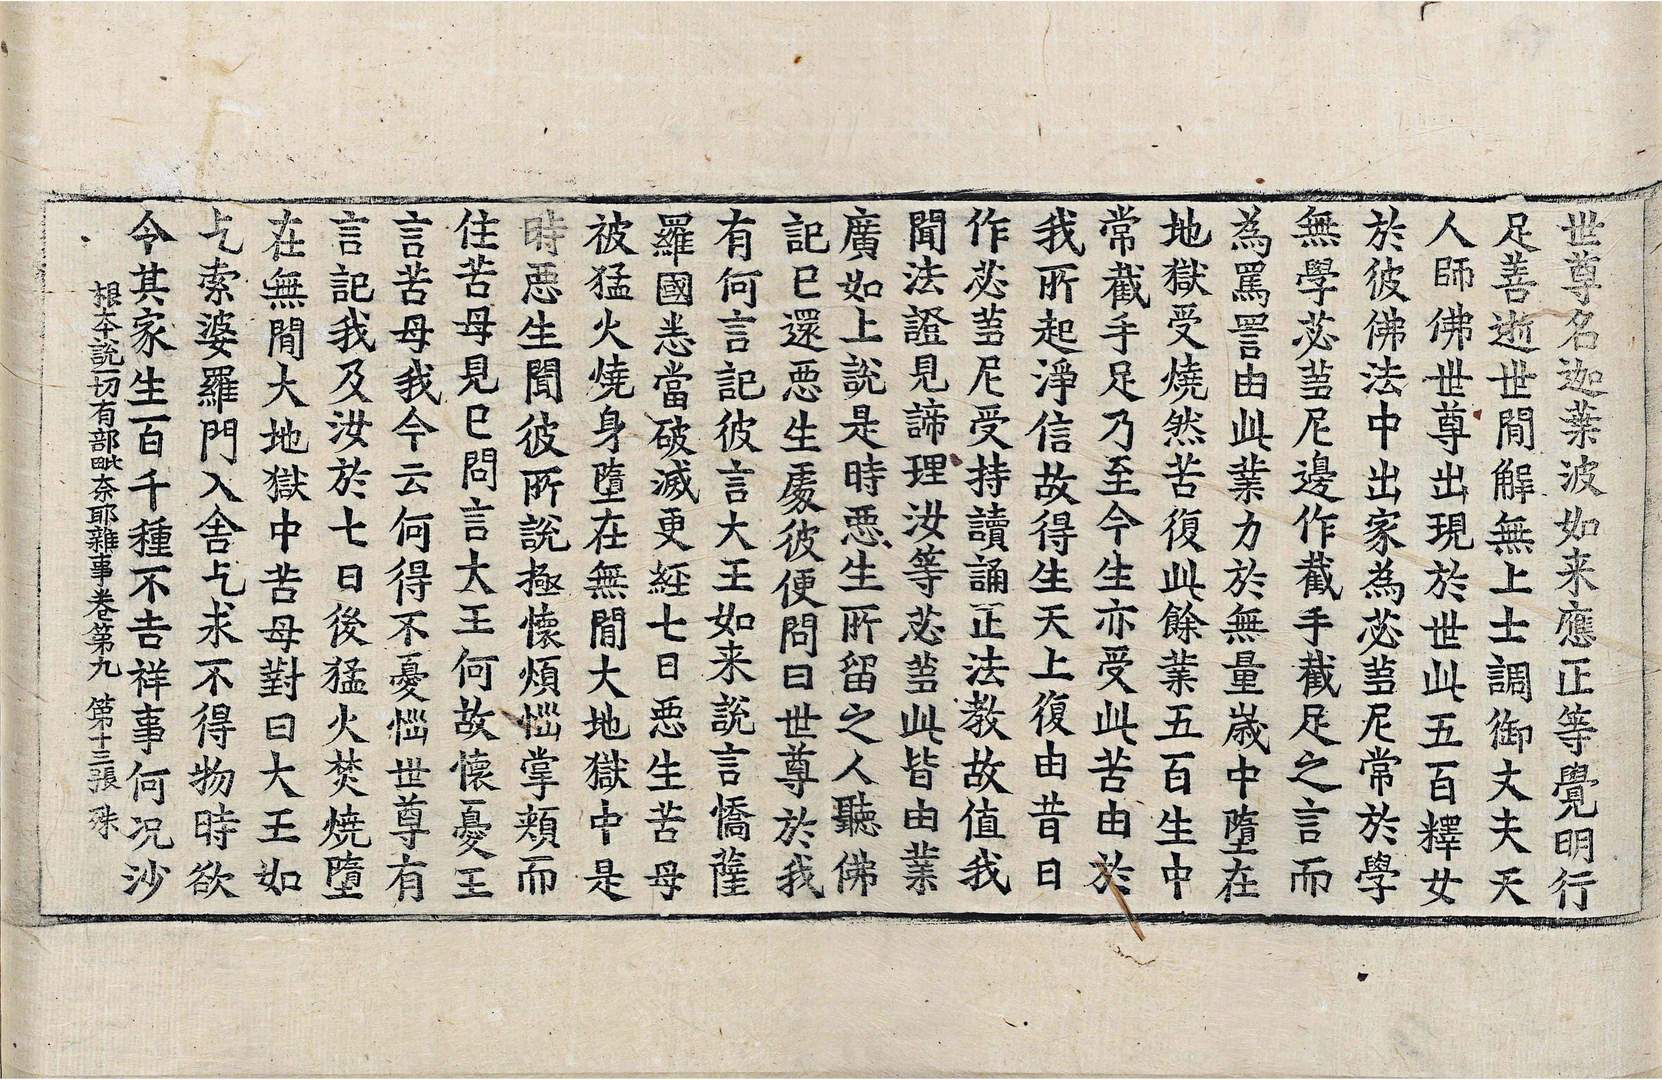 世尊名迦葉波如来應正等覺明行
足善逝世閒解無上士調御丈夫天
人師佛世尊出現於世此五百釋女
於彼佛法中出家為苾蒭尼常於學
無學苾蒭尼邊作截手截足之言而
為罵詈由此業力於無量歲中墮在
地獄受燒然苦復此餘業五百生中
常截手足乃至今生亦受此苦由於
我所起淨信故得生天上復由昔日
作苾蒭尼受持讀誦正法教故值我
聞法證見諦理汝等苾蒭此皆由業
廣如上說是時惡生所留之人聽佛
記已還惡生處彼便問曰世尊於我
有何言記彼言大王如来說言憍薩
羅國悉當破滅更經七日惡生苦母
被猛火燒身墮在無閒大地獄中是
時惡生聞彼所說極懷煩惱掌頰而
住苦母見已問言大王何故懷憂王
言苦母我今云何得不憂惱世尊有
言記我及汝於七日後猛火焚燒墮
在無閒大地獄中苦母對曰大王如
乞索婆羅門入舍乞求不得物時欲
令其家生百千種不吉祥事何况沙
根本說一切有部毗奈耶雜事卷第九　第十三張　殊